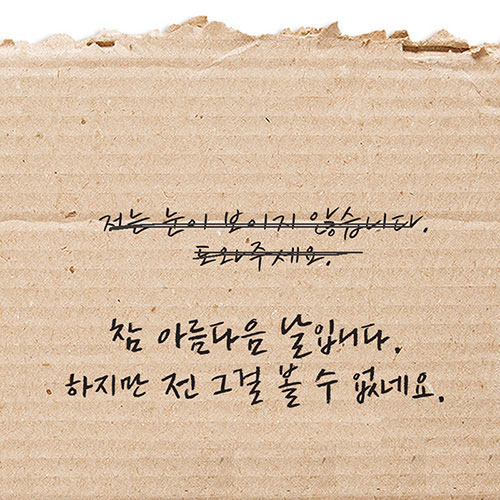 저는 눈이 보이지 않습니다.
도와주세요.
참 아름다음 날입니다.
하지만 전 그걸 볼 수 없네요.